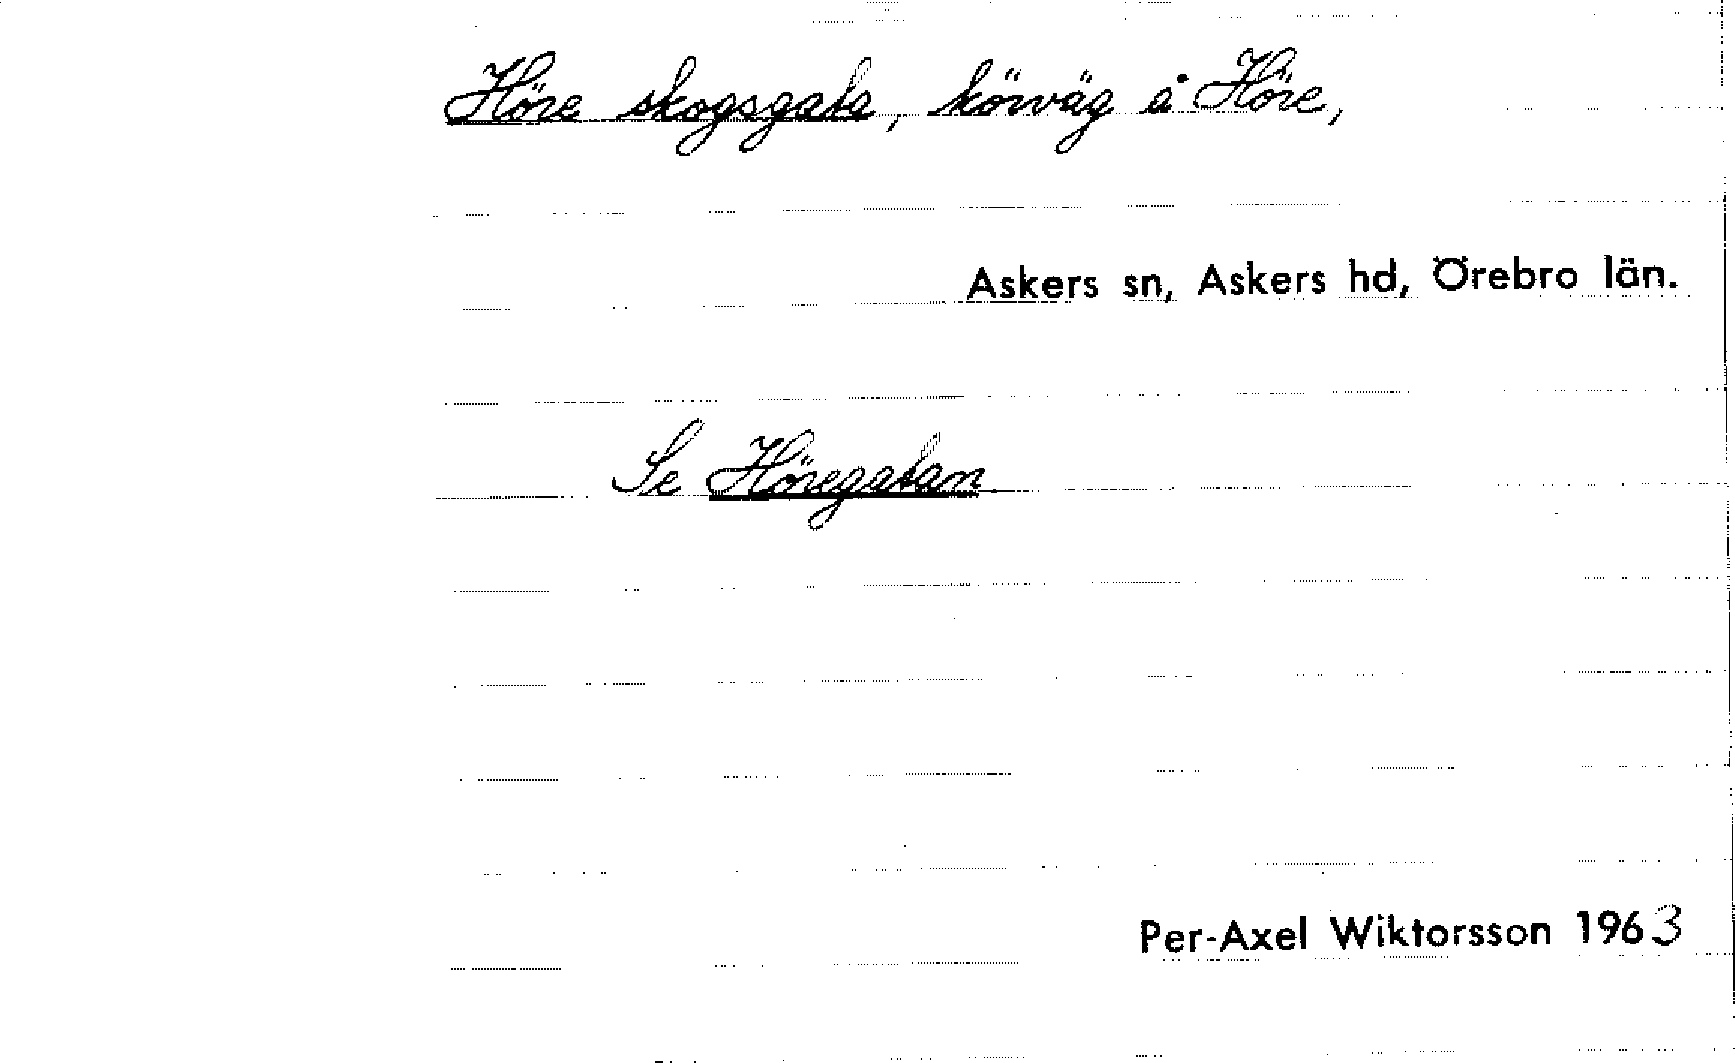 Höre skogsgata, körväg å Höre,
Askers sn, Askers hd, Örebro län.
Se Höregatan
Per-Axel Wiktorsson 1963